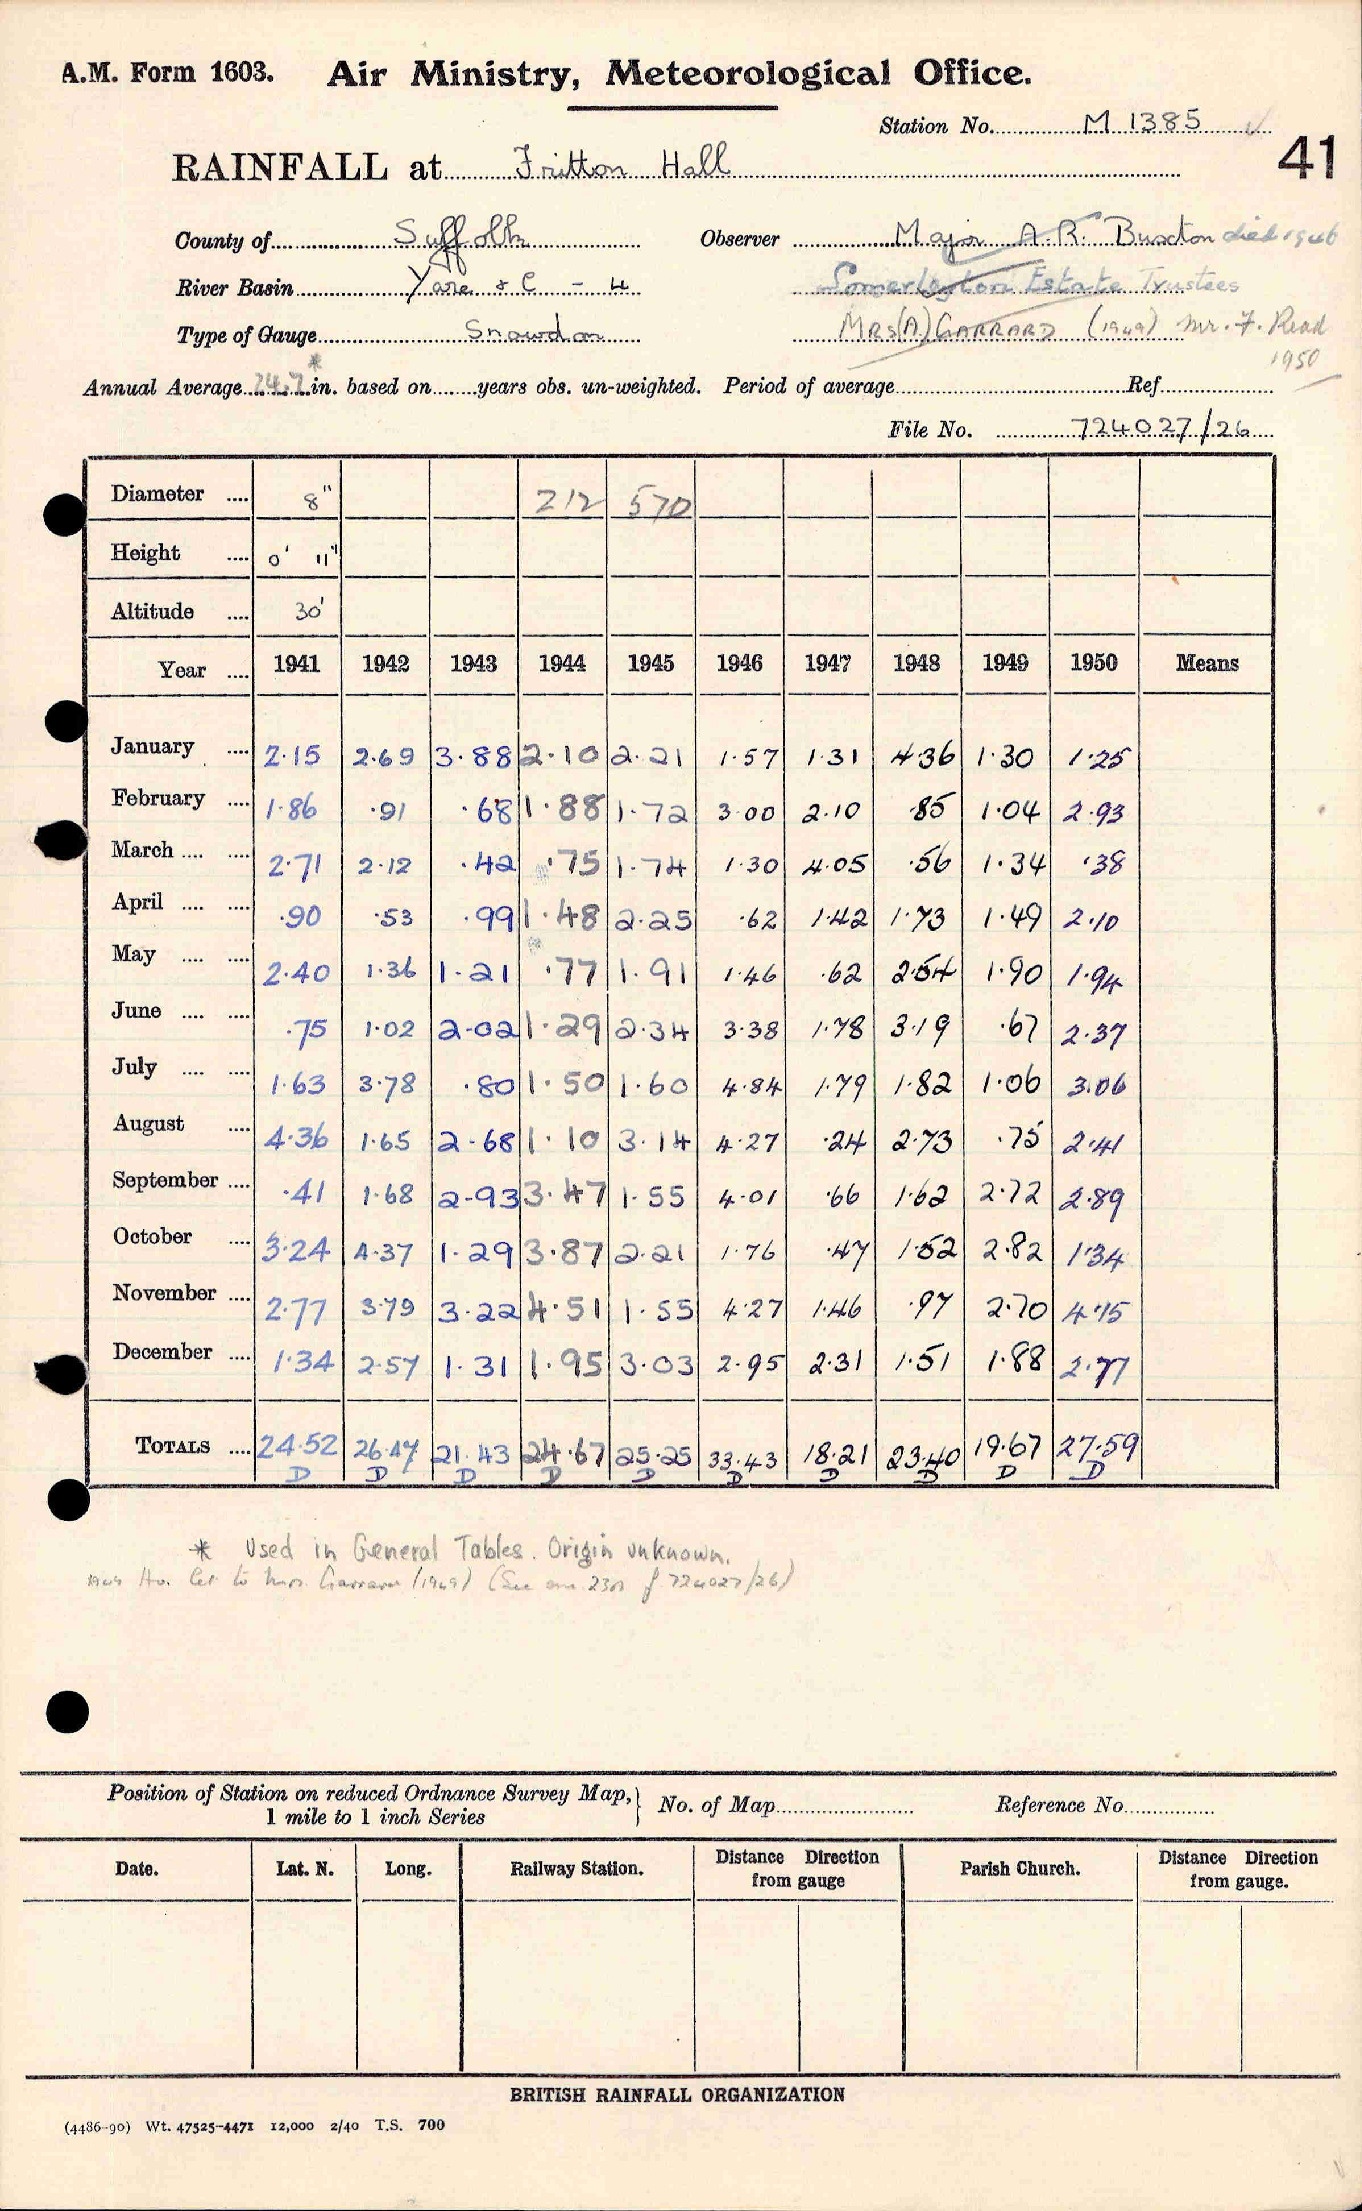 A.M. Form 1603. Air Ministry, Meteorological Office.
Station No. M 1385
41
RAINFALL at Fritton Hall
County of Suffolk Observer Major A.R. Buxton died 1946
River Basin Yare & C - 4 Somerleyton Estate Trustees
Type of Gauge Snowdon Mrs (A) GARRARD (1949) Mr. F. Read
1950
Annual Average 24.7* in. based on years obs. un-weighted. Period of average Ref
File No. 724027/26
Diameter .... 8" 212 570
Height .... 0' 11"
Altitude .... 30'
Year .... 1941 1942 1943 1944 1945 1946 1947 1948 1949 1950 Means
January .... 2.15 2.69 3.88 2.10 2.21 1.57 1.31 4.36 1.30 1.25
February .... 1.86 .91 .68 1.88 1.72 3.00 2.10 .85 1.04 2.93
March .... .... 2.71 2.12 .42 .75 1.74 1.30 4.05 .56 1.34 .38
April .... .... .90 .53 .99 1.48 2.25 .62 1.42 1.73 1.49 2.10
May .... .... 2.40 1.36 1.21 .77 1.91 1.46 .62 2.54 1.90 1.94
June .... .... .75 1.02 2.02 1.29 2.34 3.38 1.78 3.19 .67 2.37
July .... .... 1.63 3.78 .80 1.50 1.60 4.84 1.79 1.82 1.06 3.06
August .... 4.36 1.65 2.68 1.10 3.14 4.27 .24 2.73 .75 2.41
September .... .41 1.68 2.93 3.47 1.55 4.01 .66 1.62 2.72 2.89
October .... 3.24 4.37 1.29 3.87 2.21 1.76 .47 1.52 2.82 1.34
November .... 2.77 3.79 3.22 4.51 1.55 4.27 1.46 .97 2.70 4.15
December .... 1.34 2.57 1.31 1.95 3.03 2.95 2.31 1.51 1.88 2.77
TOTALS .... 24.52 26.47 21.43 24.67 25.25 33.43 18.21 23.40 19.67 27.59
D D D D D D D D D D
* Used in General Tables. Origin unknown.
1949 Ho. let to Mrs. Garrard (1949) (See 724027/26)
Position of Station on reduced Ordnance Survey Map, No. of Map Reference No
1 mile to 1 inch Series
Date. Lat. N. Long. Railway Station. Distance Direction from gauge Parish Church. Distance Direction from gauge.
BRITISH RAINFALL ORGANIZATION
(4486-90) Wt. 47525-4471 12,000 2/40 T.S. 700